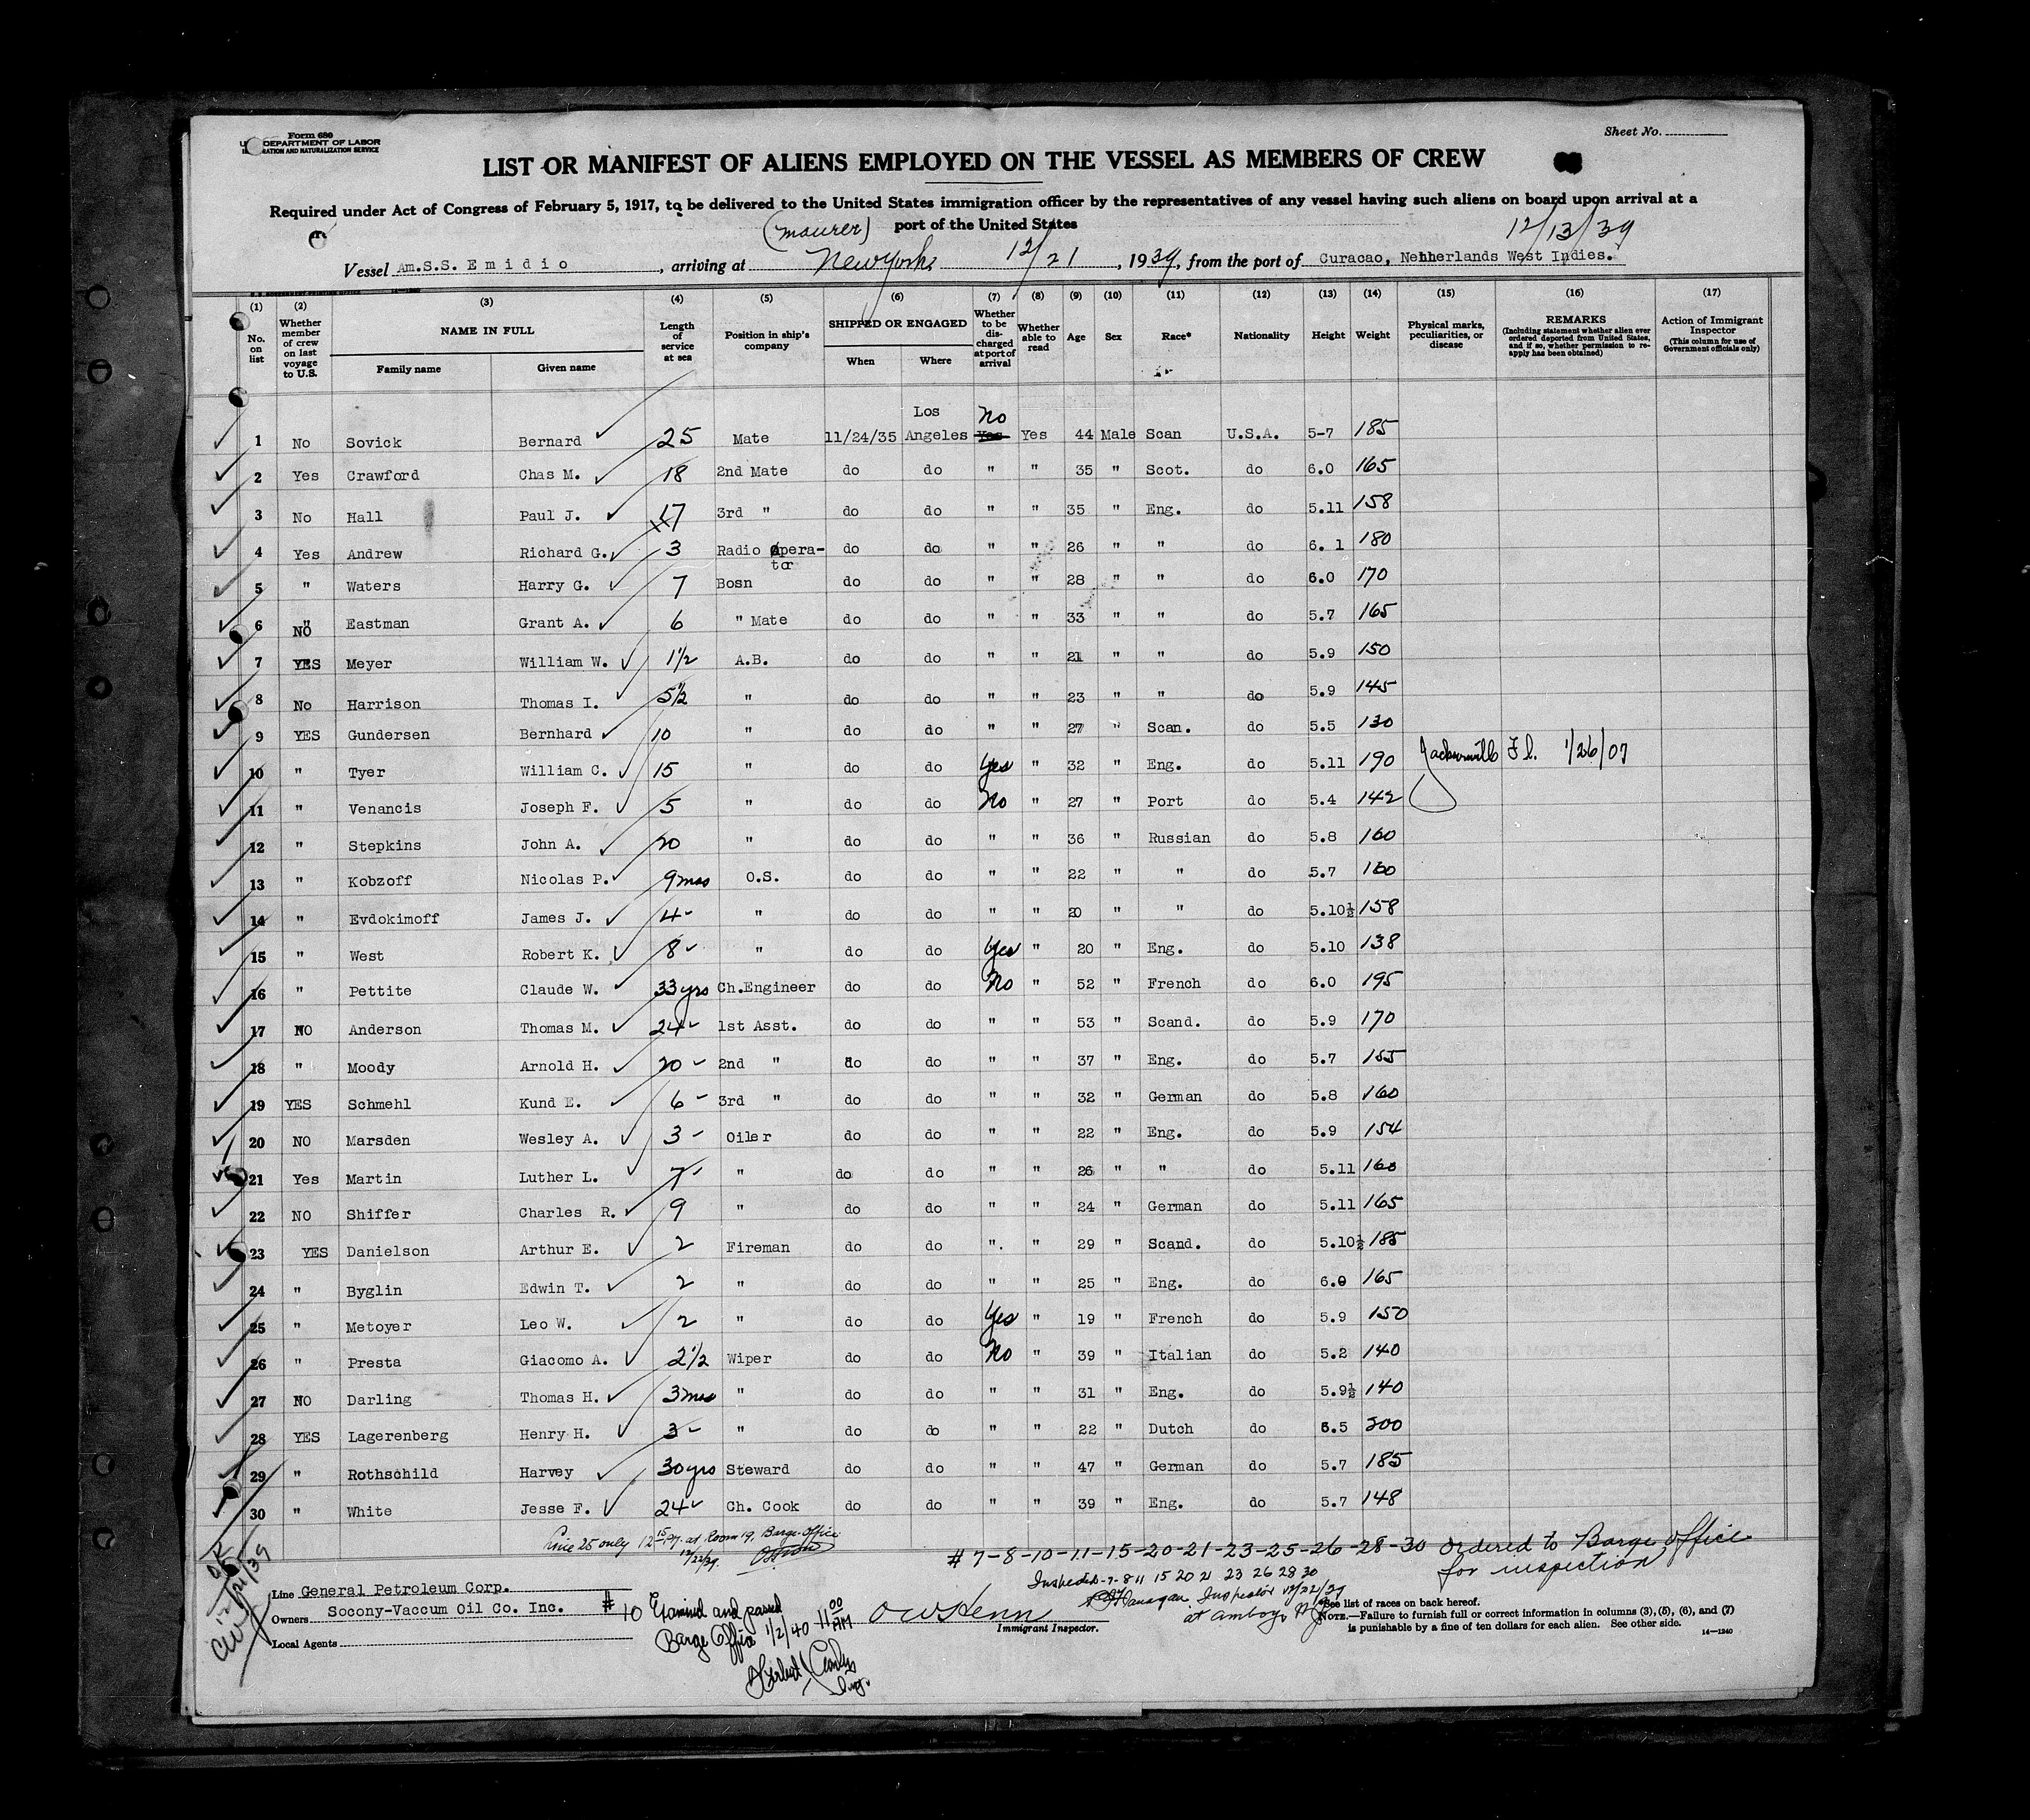 Form 680
DEPARTMENT OF LABOR
IMMIGRATION AND NATURALIZATION SERVICE
Sheet No.
LIST OR MANIFEST OF ALIENS EMPLOYED ON THE VESSEL AS MEMBERS OF CREW
Required under Act of Congress of February 5, 1917, to be delivered to the United States immigration officer by the representatives of any vessel having such aliens on board upon arrival at a
port of the United States
(Maurer) 12/13/39
Vessel Am.S.S. Emidio, arriving at New York 12/21, 1939, from the port of Curacao, Netherlands West Indies.
(1) (2) (3) (4) (5) (6) (7) (8) (9) (10) (11) (12) (13) (14) (15) (16) (17)
No. on list Whether member of crew on last voyage to U.S. NAME IN FULL Family name Given name Length of service at sea Position in ship's company SHIPPED OR ENGAGED When Where Whether to be discharged at port of arrival Whether able to read Age Sex Race* Nationality Height Weight Physical marks, peculiarities, or disease REMARKS (Including statement whether alien ever ordered deported from United States, and if so, whether permission to reapply has been obtained) Action of Immigrant Inspector (This column for use of Government officials only)
Los No
1 No Sovick Bernard 25 Mate 11/24/35 Angeles Yes Yes 44 Male Scan U.S.A. 5-7 185
2 Yes Crawford Chas M. 18 2nd Mate do do " " 35 " Scot. do 6.0 165
3 No Hall Paul J. 17 3rd " do do " " 35 " Eng. do 5.11 158
4 Yes Andrew Richard G. 3 Radio Opera- do do " " 26 " " do 6. 1 180
tor
5 " Waters Harry G. 7 Bosn do do " " 28 " " do 6.0 170
6 " Eastman Grant A. 6 " Mate do do " " 33 " " do 5.7 165
NO
7 YES Meyer William W. 1½ A.B. do do " " 21 " " do 5.9 150
8 No Harrison Thomas I. 5½ " do do " " 23 " " do 5.9 145
9 YES Gundersen Bernhard 10 " do do " " 27 " Scan. do 5.5 130
10 " Tyer William C. 15 " do do Yes " 32 " Eng. do 5.11 190 Jacksonville Fl. 1/26/07
11 " Venancis Joseph F. 5 " do do No " 27 " Port do 5.4 142
12 " Stepkins John A. 20 " do do " " 36 " Russian do 5.8 160
13 " Kobzoff Nicolas P. 9mos O.S. do do " " 22 " " do 5.7 160
14 " Evdokimoff James J. 4 - " do do " " 20 " " do 5.10½ 158
15 " West Robert K. 8 - " do do Yes " 20 " Eng. do 5.10 138
16 " Pettite Claude W. 33yrs Ch.Engineer do do No " 52 " French do 6.0 195
17 NO Anderson Thomas M. 24 - 1st Asst. do do " " 53 " Scand. do 5.9 170
18 " Moody Arnold H. 20 - 2nd " do do " " 37 " Eng. do 5.7 155
19 YES Schmehl Kund E. 6 - 3rd " do do " " 32 " German do 5.8 160
20 NO Marsden Wesley A. 3 - Oiler do do " " 22 " Eng. do 5.9 154
21 Yes Martin Luther L. 7 " do do " " 26 " " do 5.11 160
22 NO Shiffer Charles R. 9 " do do " " 24 " German do 5.11 165
23 YES Danielson Arthur E. 2 Fireman do do ". " 29 " Scand. do 5.10½ 185
24 " Byglin Edwin T. 2 " do do " " 25 " Eng. do 6.0 165
25 " Metoyer Leo W. 2 " do do Yes " 19 " French do 5.9 150
26 " Presta Giacomo A. 2½ Wiper do do No " 39 " Italian do 5.2 140
27 NO Darling Thomas H. 3mos " do do " " 31 " Eng. do 5.9½ 140
28 YES Lagerenberg Henry H. 3 - " do do " " 22 " Dutch do 6.5 200
29 " Rothschild Harvey 30yrs Steward do do " " 47 " German do 5.7 185
30 " White Jesse F. 24 - Ch. Cook do do " " 39 " Eng. do 5.7 148
Line 25 only at Room 19, Barge Office
12/22/39.
# 7-8-10-11-15-20-21-23-25-26-28-30 ordered to Barge Office
for inspection
Inspected-7-8 11 15 20 21 23 26 28 30
Flanagan Inspector 12/22/39
at Amboy, N.J.
OK
12/21/39
Line General Petroleum Corp.
Owners Socony-Vaccum Oil Co. Inc.
Local Agents
#10 Examined and passed
Barge Office 1/2/40 11 00 AM
Immigrant Inspector.
*See list of races on back hereof.
NOTE.—Failure to furnish full or correct information in columns (3), (5), (6), and (7)
is punishable by a fine of ten dollars for each alien. See other side.
14—1240